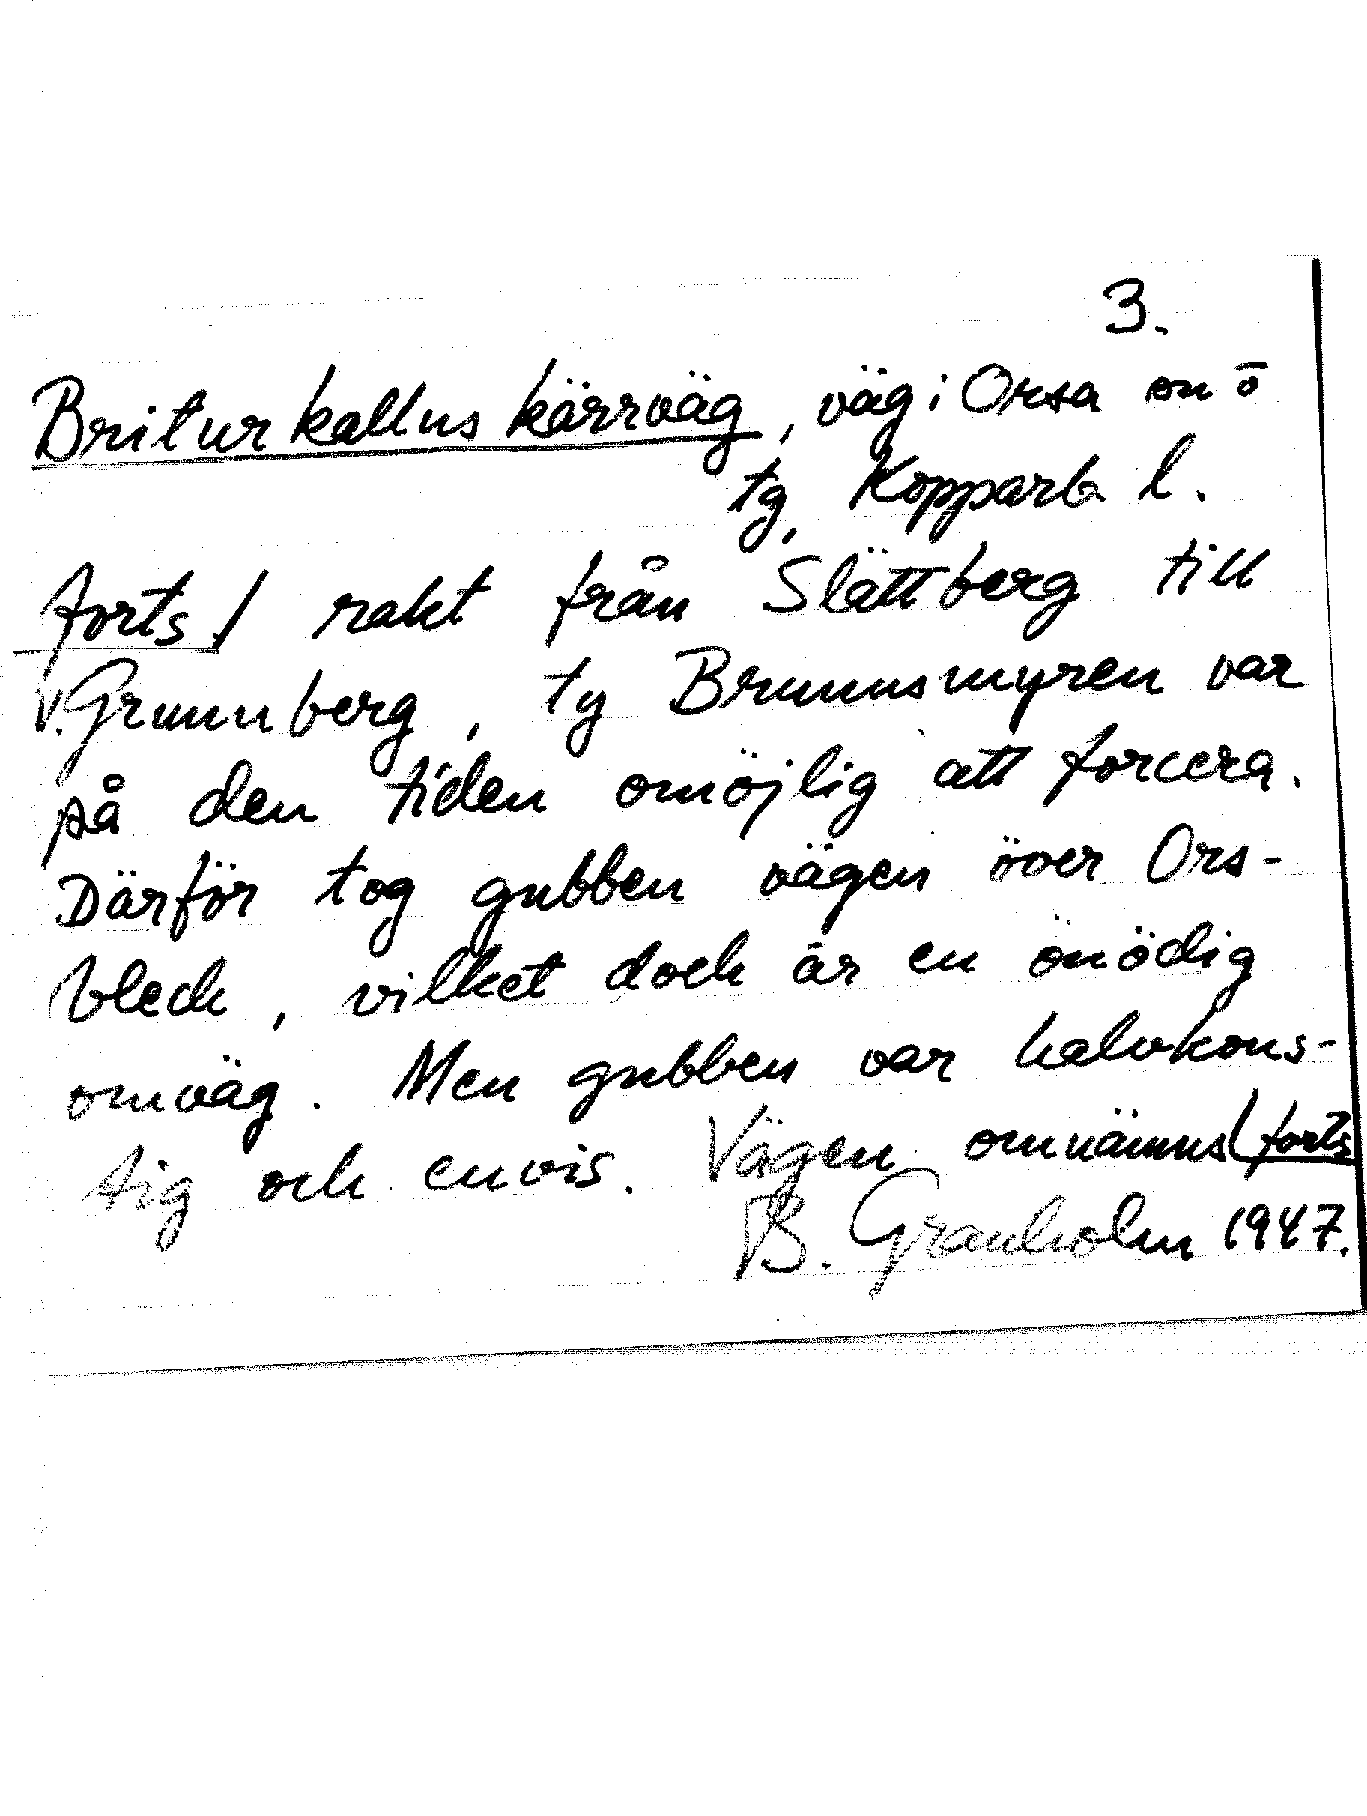 3.
Briturkallus kärrväg, väg i Orsa sn o
tg, Kopparb l.
forts/ rakt från Slättberg till
v. Grunuberg, ty Brunusmyren var
på den tiden omöjlig att forcera.
Därför tog gubben vägen över Ors-
bleck, vilket dock är en onödig
omväg. Men gubben var halvkons-
tig och envis. Vägen omnämns (forts
B. Granholm 1947.